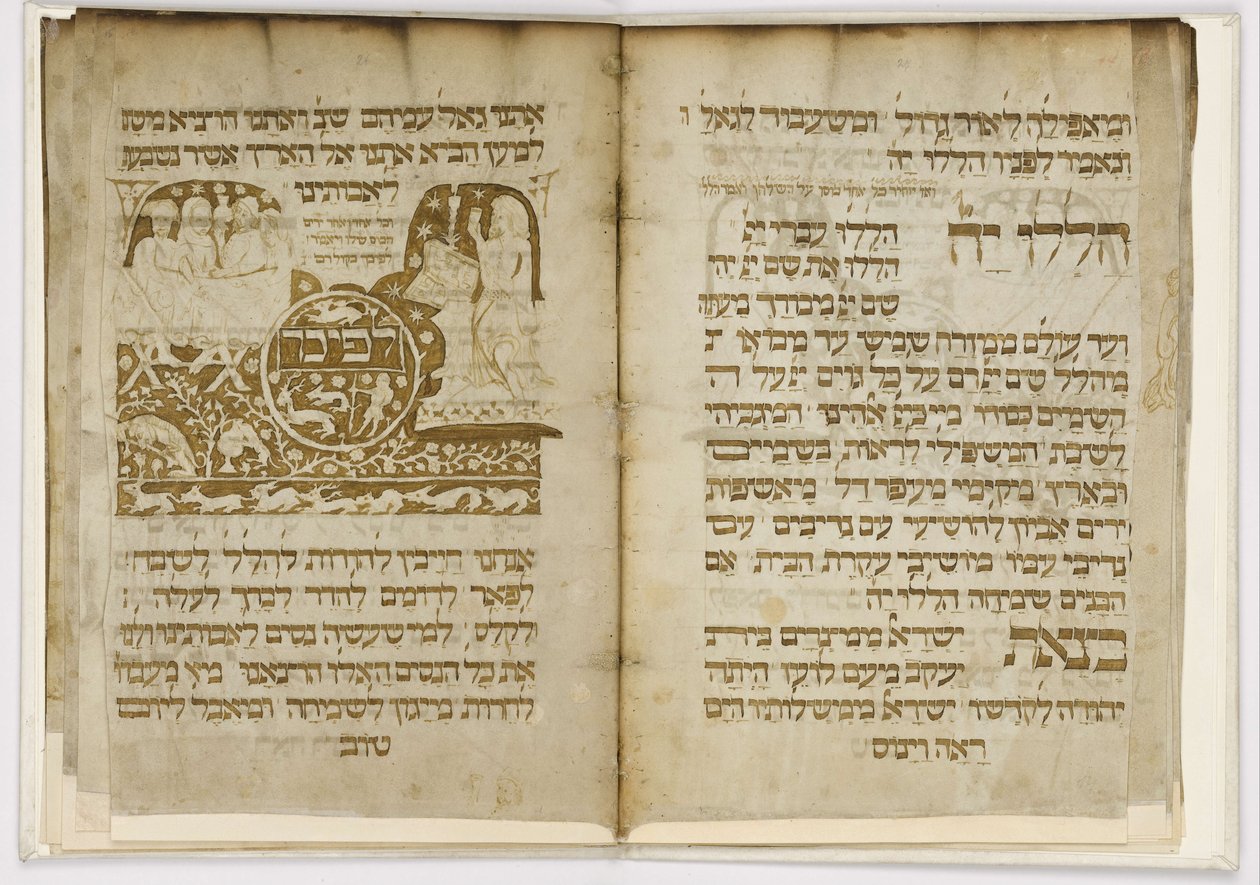 אתנו גאל עמיהם שנ ואתנו הוציא משם
למען הביא אתנו אל הארץ אשר נשבע
לאבותינו
וכל אחד ואחד ירים
הכוס שלו ויאמר
לפיכך בקול רם
לפיכך
אנחנו חייבין להודות להלל לשבח
לפאר לרומם להדר לברך לעלה
ולקלס למי שעשה נסים לאבותינו ולנו
את כל הנסים האלו הוציאנו מעבדו
לחרות מייגון לשמחה ומאבל ליום
טוב
ומאפילה לאור גדול ומשעבוד לגאל ו
ונאמר לפניו הללו יה
כל אחד כוסו על השולחן
הללו יה
הללו עבדי יי
הללו את שם יי יהי
שם יי מבורך מעתה
ועד עולם ממזרח שמש עד מבואו
מהלל שם יי רם על כל גוים יי על ה
השמים כבודו מי כיי אלהינו המגביהי
לשבת המשפילי לראות בשמים
ובארץ מקימי מעפר דל מאשפות
ירים אביון להושיבי עם נדיבים עם
נדיבי עמו מושיבי עקרת הבית אם
הבנים שמיחה הללו יה
בצאת ישרא ממצרים בית
יעקב מעם לועז היתה
יהודה לקדשו ישרא ממשלותיו הים
ראה וינוס